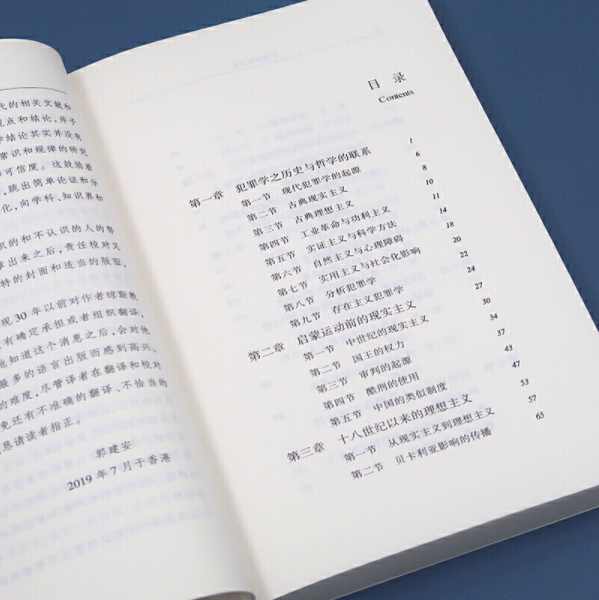 代的相关文献和
观点和结论,并予
学结论其实并没有
常识和规律的研究
和可信度。这鼓励着
,跳出简单论证和分
化,向学科、知识界和
识的和不认识的人的帮
章出来之后,责任校对又
特的封面和适当的版面,
现30年以前对作者琼斯教
有确定承担或者组织翻译。
他知道这个消息之后,会对他
最多的语言出版而感到高兴。
的难度,尽管译者在翻译和校对
免还有不准确的翻译、不恰当的
恳请读者指正。
郭建安
2019年7月于香港
目录
Contents
第一章 犯罪学之历史与哲学的联系 1
第一节 现代犯罪学的起源 6
第二节 古典现实主义 8
第三节 古典理想主义 10
第四节 工业革命与功利主义 11
第五节 实证主义与科学方法 14
第六节 自然主义与心理障碍 18
第七节 实用主义与社会化影响 20
第八节 分析犯罪学 22
第九节 存在主义犯罪学 24
第二章 启蒙运动前的现实主义 27
第一节 中世纪的现实主义 30
第二节 国王的权力 34
第三节 审判的起源 37
第四节 酷刑的使用 43
第五节 中国的类似制度 47
第三章 十八世纪以来的理想主义 53
第一节 从现实主义到理想主义 57
第二节 贝卡利亚影响的传播 65